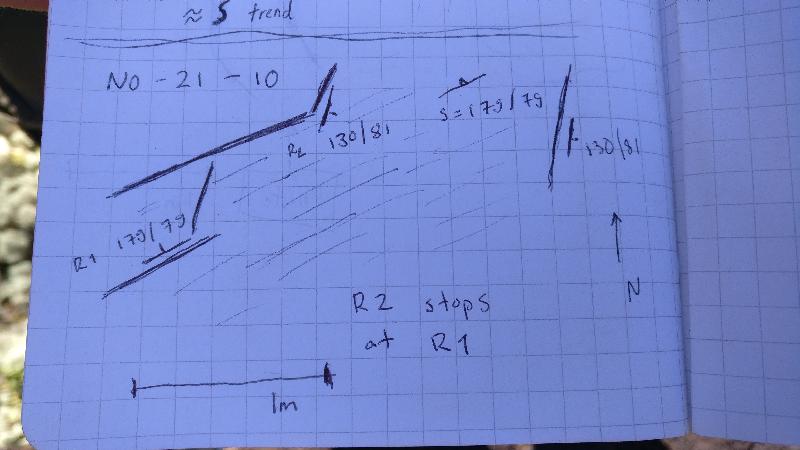 ≈ S trend
NO-21-10
R2 130/81
S=179/79
130/81
R1 179/79
N
R2 stops
at R1
1m